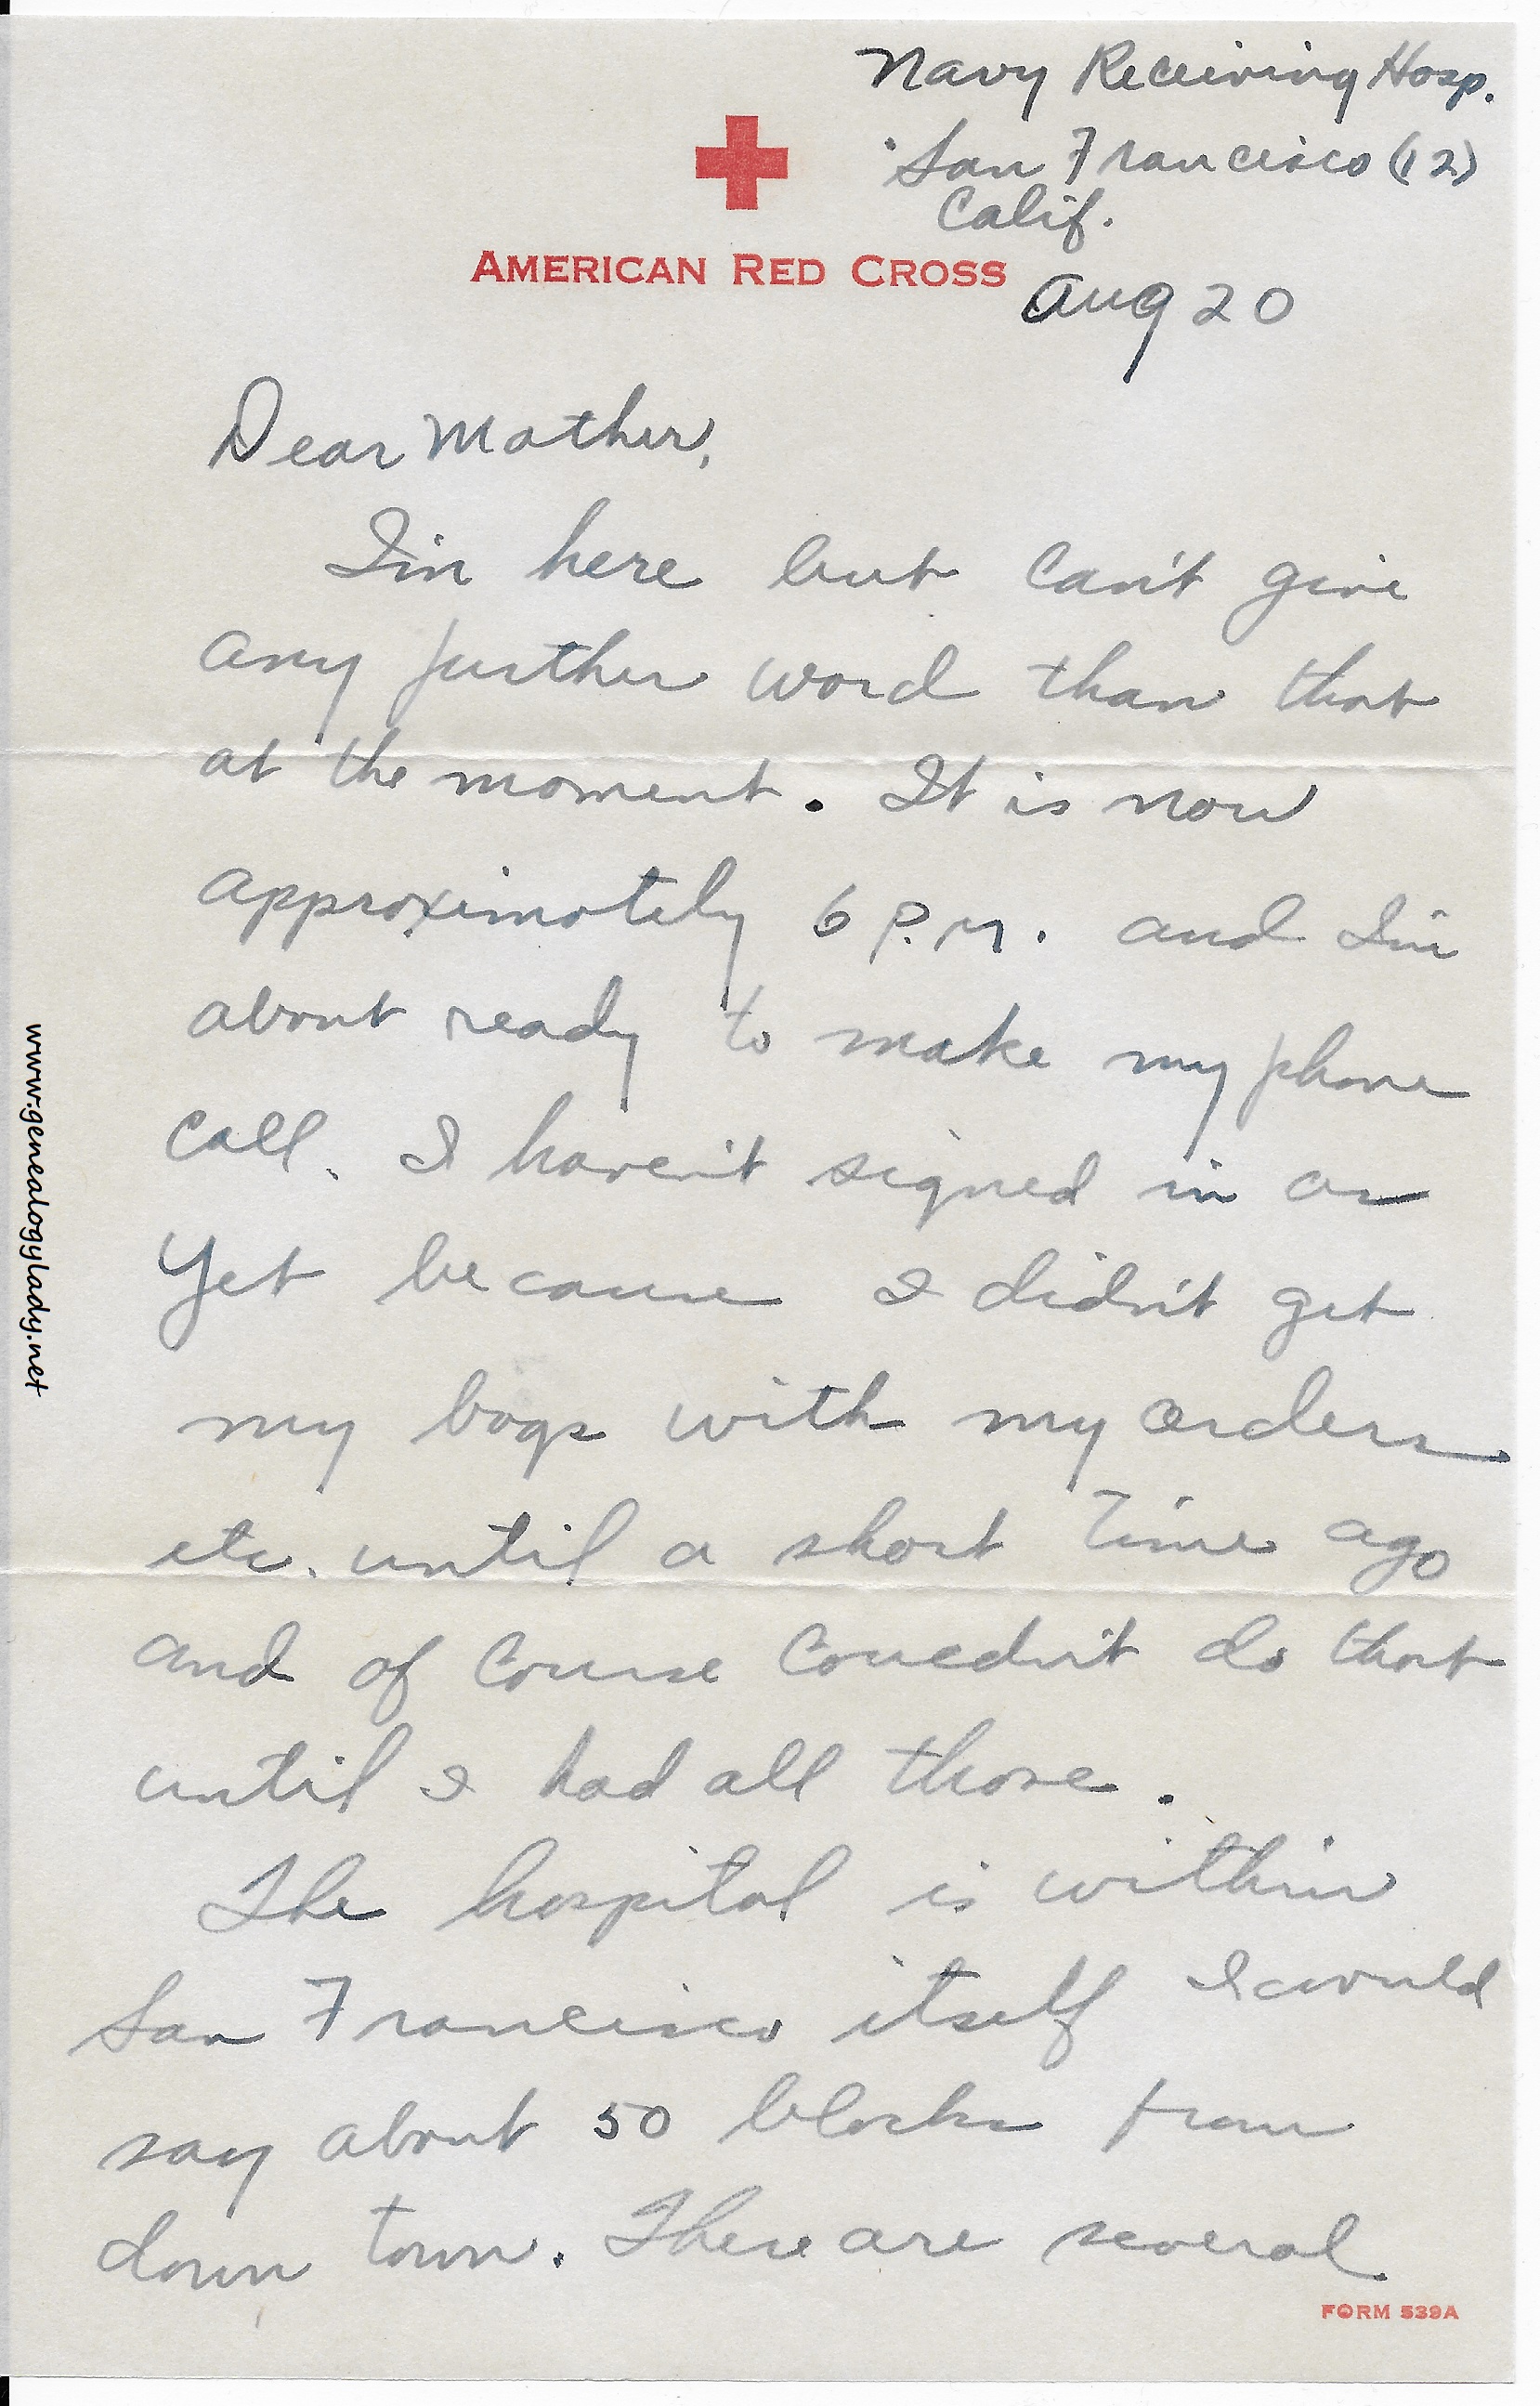 Navy Receiving Hosp.
San Francisco (12)
Calif.
AMERICAN RED CROSS
Aug 20
Dear Mother,
I'm here but can't give
any further word than that
at the moment. It is now
approximately 6 P.M. and I'm
about ready to make my phone
call. I haven't signed in as
yet because I didn't get
my bags with my orders
etc. until a short time ago
and of course couldn't do that
until I had all those.
The hospital is within
San Francisco itself I would
say about 50 blocks from
down town. There are several
FORM 539A
www.genealogylady.net